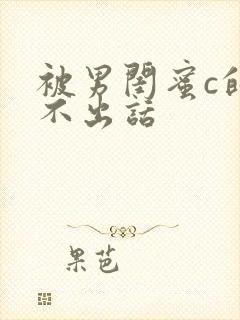 被男闺蜜c的
不出話
果芭